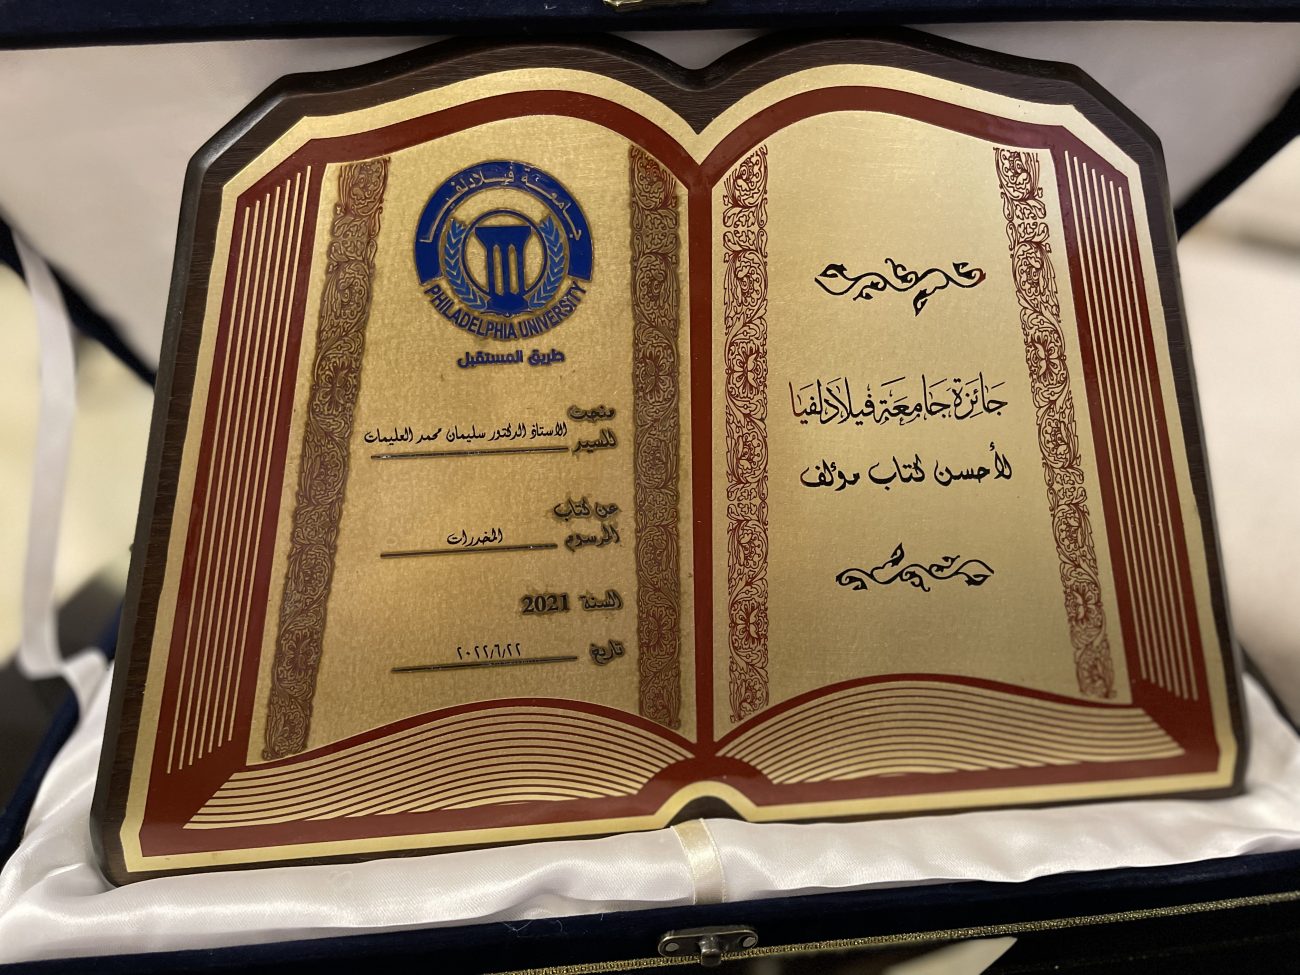 جَائزة جَامعَة فيلادلفيا
لأحسن كتاب مؤلف
جامعة فيلادلفيا
PHILADELPHIA UNIVERSITY
طريق المستقبل
منحت
للسيد الاستاذ الدكتور سليمان محمد العليمات
عن كتاب
المرسوم المخدرات
السنة 2021
تاريخ ٢٠٢٢/٦/٢٢